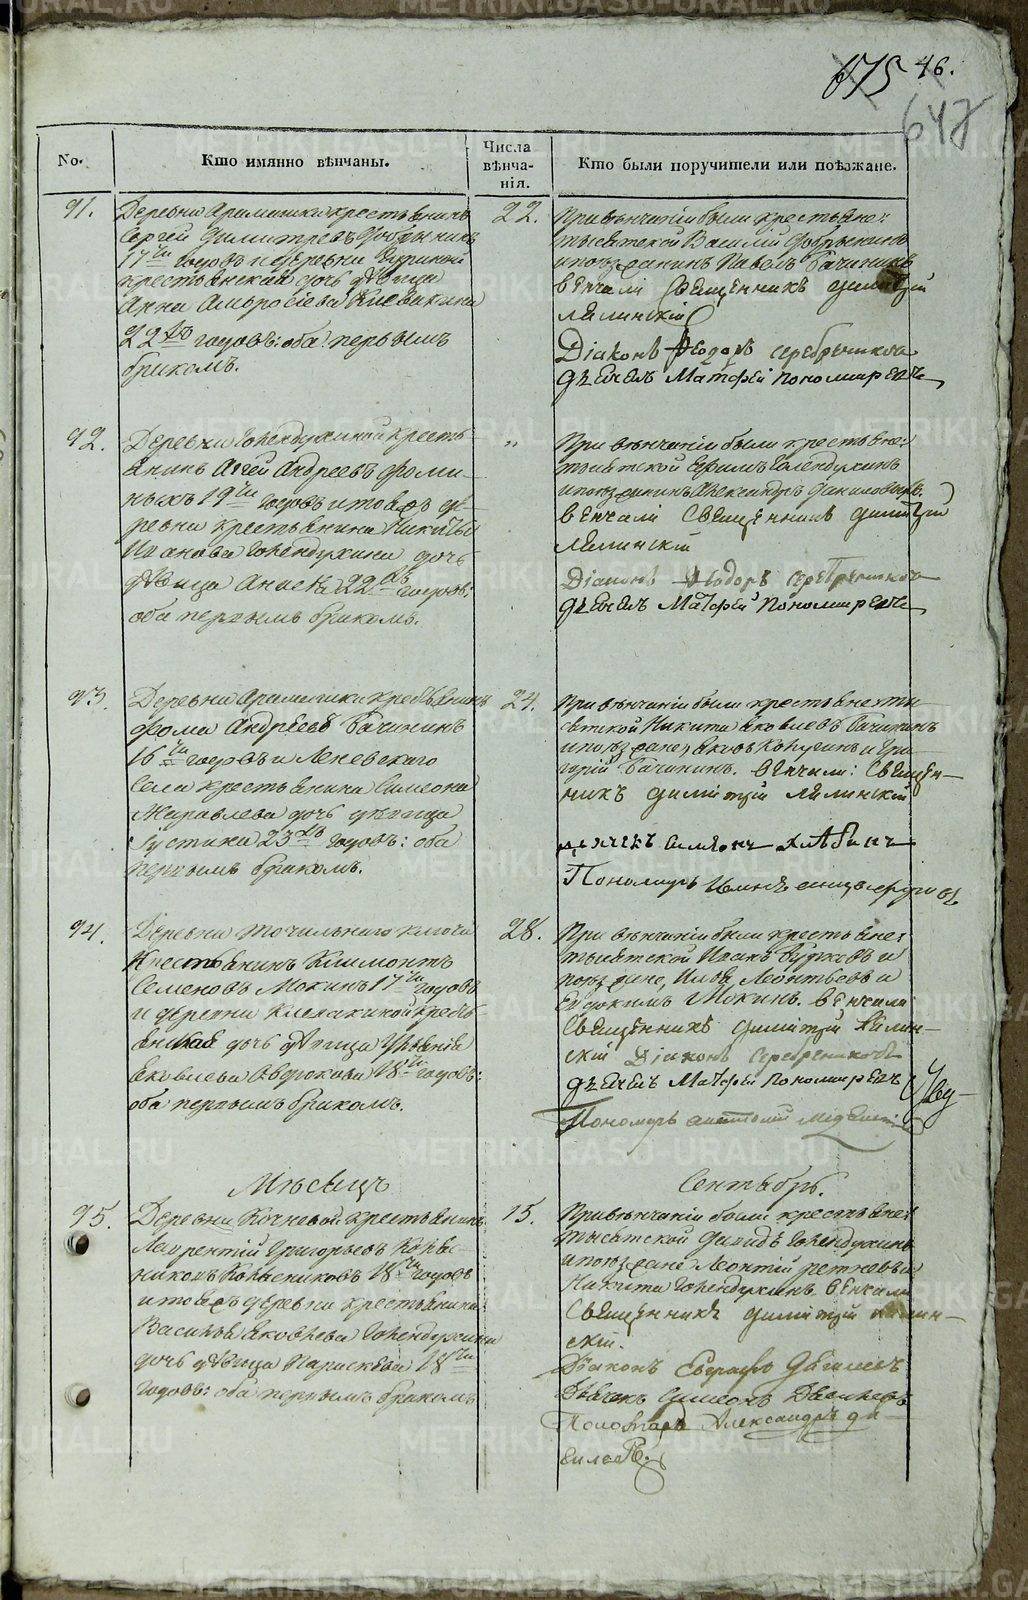 675 46.
647
No.
Кто имянно вѣнчаны.
Числа вѣнча-нія.
Кто были поручители или поѣзжане.
91.
Деревни Арамашки крестьянинъ
Сергей Димитревъ Добрынинъ
17ти годовъ и деревни
крестьянская дочь дѣвица
Анна Амвросіева
22хъ годовъ: оба первымъ
бракомъ.
22.
При вѣнчаніи были крестьяне:
тысятской Василій Добрынинъ
и поѣзжанинъ Павелъ Бачининъ
вѣнчали Священникъ Димитрій
Лялинскій
Діаконъ Феодоръ Серебрениковъ
Дьячекъ Матфей Пономаревъ
92.
Деревни Голендухиной кресть-
янинъ Агей Андреевъ Фоми-
ныхъ 19ти годовъ и тояжъ де-
ревни крестьянина Никиты
Иванова Голендухина дочь
дѣвица 22хъ годовъ:
оба первымъ бракомъ.
"
При вѣнчаніи были крестьяне:
тысятской Ефимъ Голендухинъ
и поѣзжанинъ Александръ
вѣнчали Священникъ Димитрій
Лялинскій
Діаконъ Феодоръ Серебрениковъ
Дьячекъ Матфей Пономаревъ
93.
Деревни Арамашки крестьянинъ
Фома Андреевъ Бачининъ
16ти годовъ и Леневскаго
села крестьянина Симеона
Журавлева дочь дѣвица
Іустина 23хъ годовъ: оба
первымъ бракомъ.
24.
При вѣнчаніи были крестьяне ты-
сятской Никита Яковлевъ Бачининъ
и поѣзжане, Яковъ и Гри-
горій Бачининъ. вѣнчали: Священ-
никъ Димитрій Лялинскій
дьячекъ Симеонъ Хлѣбинъ
Пономарь
94.
Деревни Точильнаго ключа
крестьянинъ Климонтъ
Семеновъ Мокинъ 17ти годовъ
и деревни Клевакиной кресть-
янская дочь дѣвица
Яковлева 18ти годовъ:
оба первымъ бракомъ.
28.
При вѣнчаніи были крестьяне:
тысятской Иванъ и
поѣзжане, Илья Леонтьевъ и
Евдокимъ Мокинъ. вѣнчали
Священникъ Димитрій Лялин-
скій Діаконъ Серебрениковъ
Дьячекъ Матфей Пономаревъ
Пономарь
Мѣсяцъ Сентябрь.
95.
Деревни Кочневой крестьянинъ
Лаврентій Григорьевъ
18ти годовъ
и тояжъ деревни крестьянина
Василья Яковлева Голендухина
дочь дѣвица Параскева 18ти
годовъ: оба первымъ бракомъ
15.
При вѣнчаніи были крестьяне:
тысятской Давидъ Голендухинъ
и поѣзжане Леонтій и
Никита Голендухинъ. вѣнчали
Священникъ Димитрій Лялин-
скій.
Діаконъ
Дьячекъ Симеонъ
Пономарь Александръ